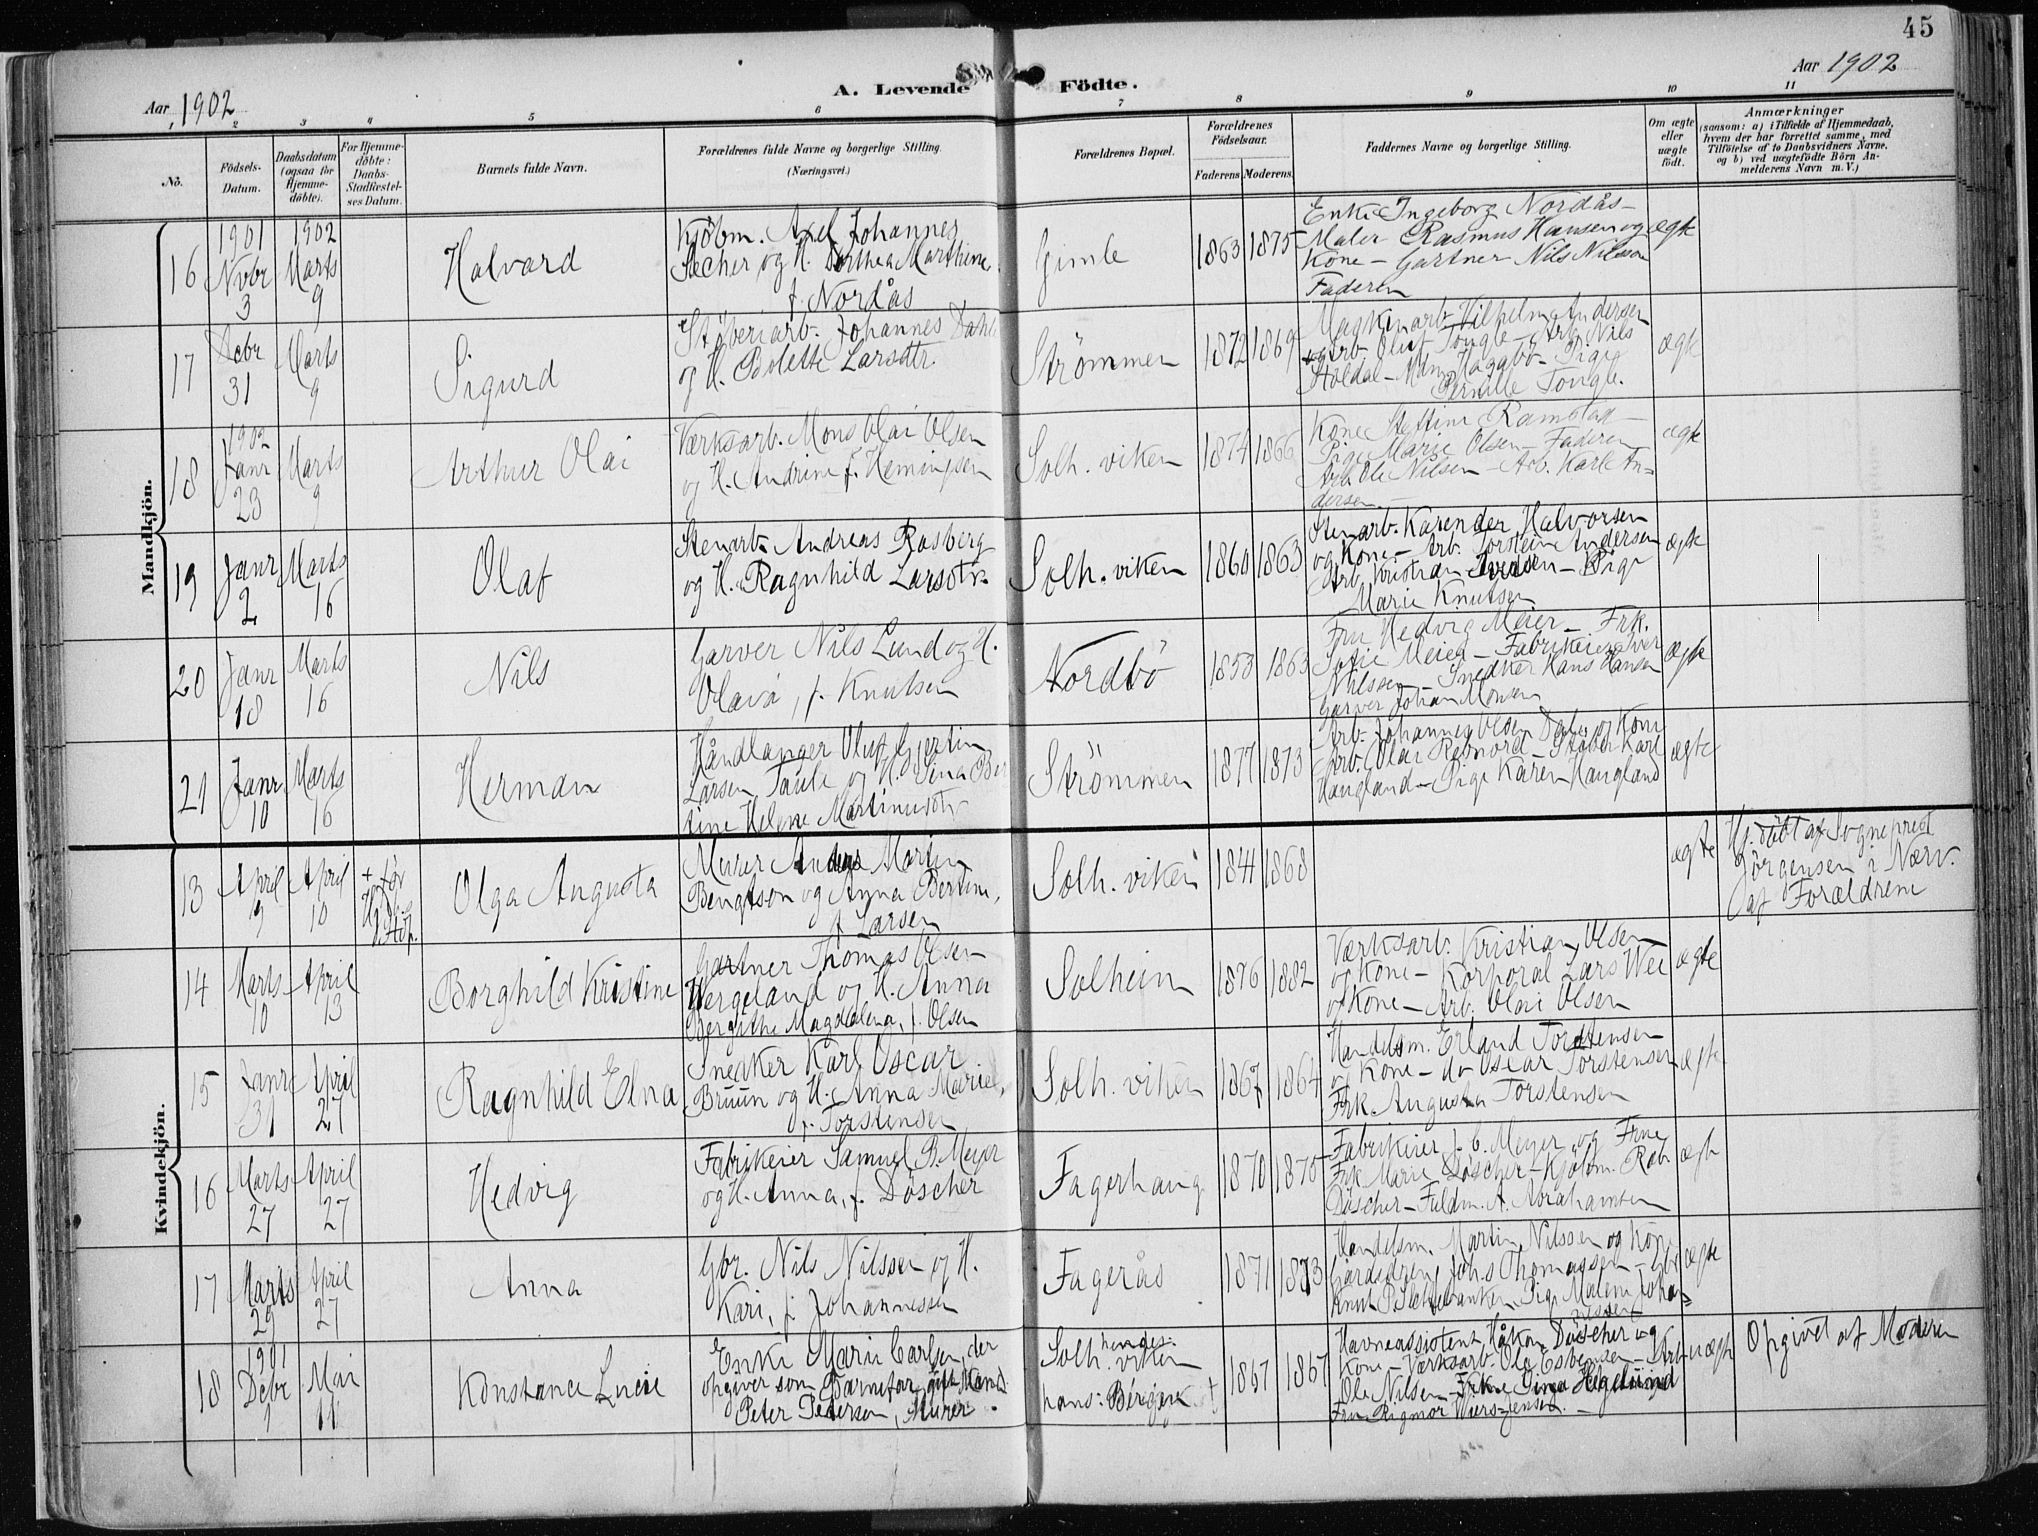 45
Aar 1902
A. Levende Födte.
Aar 1902
1 2 3 4 5 6 7 8 9 10 11
No.
Födsels-Datum.
Daabsdatum (ogsaa for Hjemme-döbte).
For Hjemme-döbte: Daabs-Stadfæstel-ses Datum.
Barnets fulde Navn.
Forældrenes fulde Navne og borgerlige Stilling. (Næringsvei.)
Forældrenes Bopæl.
Forældrenes Födselsaar.
Faderens Moderens.
Faddernes Navne og borgerlige Stilling.
Om ægte eller uægte födt.
Anmærkninger
(saasom: a) i Tilfælde af Hjemmedaab, hvem der har forrettet samme, med Tilföielse af to Daabsvidners Navne, og b) ved uægtefödte Börn An-melderens Navn m. V.)
Mandkjön.
16
1901 Novbr 3
1902 Marts 9
Halvard
Kjöbm. Axel Johannes
Secher og H. Dorthea Marthine,
f. Nordås
Gimle
1863 1875
Enke Ingeborg Nordås-
Maler Rasmus Hansen og
Kone - Gartner Nils Nilsson
Faderen
ægte
17
Debr 31
Marts 9
Sigurd
Støberiarb. Johannes Dahle
og H. Bolette Larsdtr.
Strömmen
1872 1869
Maskinarb. Vilhelm Andersen
Arb. Oluf Tongle - Arb. Nils
Pernille Tongle.
ægte
18
1902 Janr 23
Marts 9
Arthur Olai
Værksarb. Mons Olai Olsen
og H. Andrine f. Hemingsen
Solh. viken
1874 1866
Kone Stettine Ramstad -
Pige Marie Olsen - Faderen
Arb. Ole Nilsen - Arb. Karl An-
dersen -
ægte
19
Janr 2
Marts 16
Olaf
Stenarb. Andreas Rosberg
og H. Ragnhild Larsdtr.
Solh. viken
1860 1863
Stenarb. Karender Halvorsen
og Kone - Arb. Torstein Andersen
Arb. Kristian Iversen - Pige
Marie Knutsen
ægte
20
Janr 18
Marts 16
Nils
Garver Nils Lund og H.
Olava, f. Knutsen
Nordbö
1853 1863
Fru Hedvig Meier - Frk.
Sofie Meier - Fabrikeier Iver
Nilssen - Snedker Hans Hansen
Garver Johan Monsen
ægte
21
Janr 10
Marts 16
Herman
Håndlanger Oluf Gjertin
Larsen Taule og H. Sina Ber
tine Helene Martinusdtr.
Strömmen
1877 1873
Arb. Johannes Olsen Dale og Kone
Arb. Olai Remord - Støber Karl
Haugland - Pige Karen Haugland
ægte
Kvindekjön.
13
April 9
April 10
+ før
Olga Augusta
Murer Anders Martin
Bengtson og Anna Bertine,
f. Larsen
Solh. viken
1841 1868
ægte
Hj. døbt af Sogneprest
Jörgensen i Nærv.
af Forældrene
14
Marts 10
April 13
Borghild Kristine
Gartner Thomas Olsen
Wergeland og H. Anna
Bergithe Magdalena, f. Olsen
Solheim
1876 1882
Værksarb. Kristian Olsen
og Kone - Korporal Lars Wee
og Kone - Arb. Olai Olsen
ægte
15
Janr 31
April 27
Ragnhild Elna
Snedker Karl Oscar
Bruun og H. Anna Marie,
f. Torstensen
Solh. viken
1867 1864
Handelsm. Erland Torstensen
og Kone - do Oscar Torstensen
Frk. Augusta Torstensen
ægte
16
Marts 27
April 27
Hedvig
Fabrikeier Samuel B. Meyer
og H. Anna, f. Döscher
Fagerhaug
1870 1875
Fabrikeier J. C. Meyer og Frue
Frk Marie Döscher - Kjöbm. Rob.
Döscher - Fuldm. A. Abrahamsen
ægte
17
Marts 29
April 27
Anna
Gbr. Nils Nilssen og H.
Kari, f. Johannesen
Fagerås
1871 1873
Handelsm. Martin Nilssen og Kone
Gårdsdreng Johs Thomassen - Gbr.
Pige Malene Johan=
nessen
ægte
18
1901 Debr 1
Mai 11
Konstance Lucie
Enke Marie Carlsen, der
opgiver som Barnefar gift Mand
Peter Pedersen, Murer.
hendes:
Solh. viken
hans: Bergen
1867 1867
Havneassistent Håkon Döscher og
Kone - Værksarb. Ole Esbensen - Arb.
Ole Nilsen -
Fru Rigmor Wiers-Jensen. -
uægte
Opgivet af Moderen